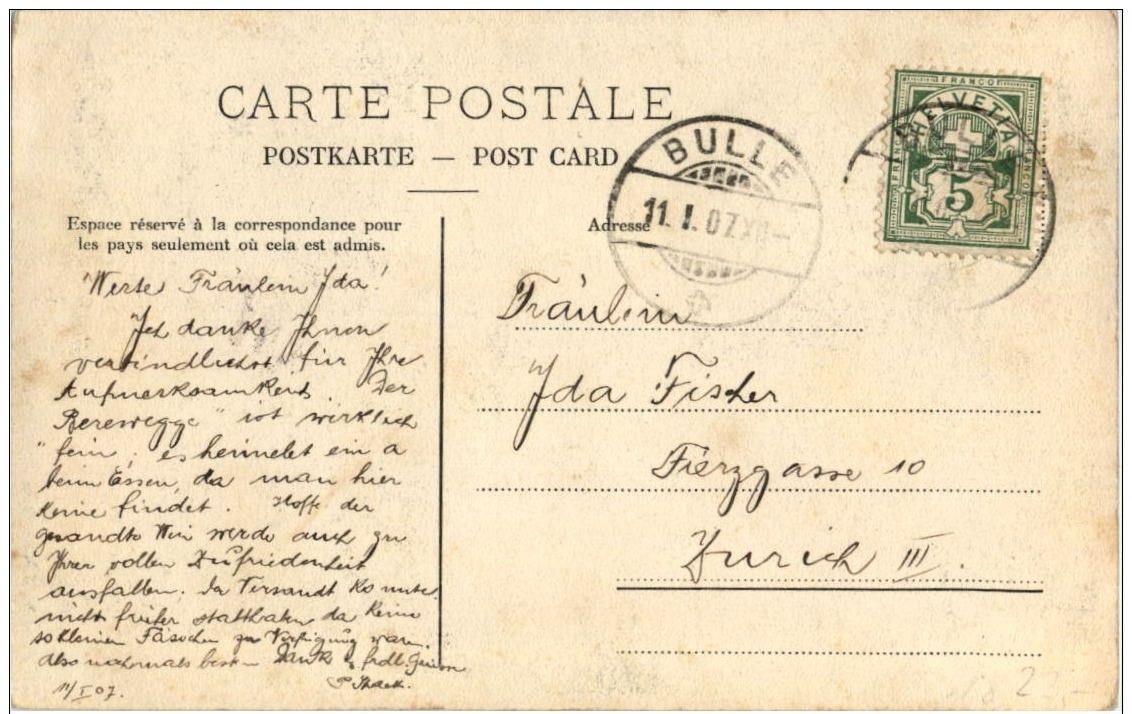 CARTE POSTALE
POSTKARTE — POST CARD
Espace réservé à la correspondance pour
les pays seulement où cela est admis.
Adresse
BULLE
11. I. 07 XII—
FRANCO
HELVETIA
FRANCO
FRANCO
5
Werte Fräulein Ida!
Ich danke Ihnen
verbindlichst für Ihre
Aufmerksamkeit. Der
"Berewegge" ist wirklich
fein, es heimelet ein a
beim Essen, da man hier
keine findet. Hoffe der
gesandte Wein werde auch zu
Ihrer vollen Zufriedenheit
ausfallen. Der Versandt konnte
nicht früher statthaben da keine
so kleinen Fässchen zur Verfügung waren.
Also nochmals besten Dank & frdl.
11/I 07.
Fräulein
Ida Fischer
Fierzgasse 10
Zürich III.